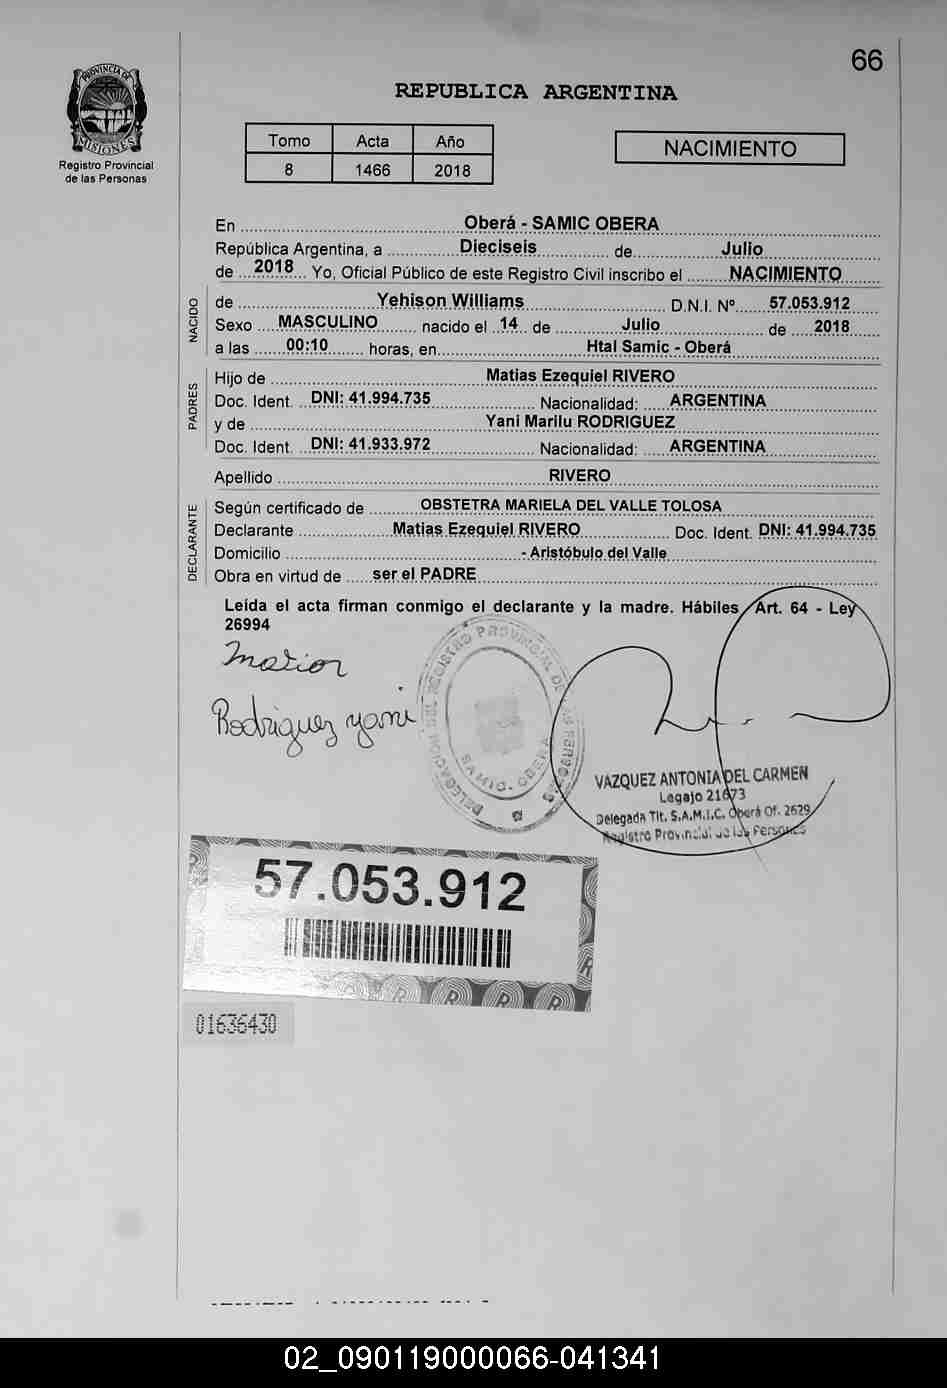 66
PROVINCIA DE
MISIONES
Registro Provincial
de las Personas
REPUBLICA ARGENTINA
Tomo Acta Año
8 1466 2018
NACIMIENTO
En Oberá - SAMIC OBERA
República Argentina, a Dieciseis de Julio
de 2018 Yo, Oficial Público de este Registro Civil inscribo el NACIMIENTO
NACIDO
de Yehison Williams D.N.I. Nº 57.053.912
Sexo MASCULINO nacido el 14 de Julio de 2018
a las 00:10 horas, en Htal Samic - Oberá
PADRES
Hijo de Matias Ezequiel RIVERO
Doc. Ident. DNI: 41.994.735 Nacionalidad: ARGENTINA
y de Yani Marilu RODRIGUEZ
Doc. Ident. DNI: 41.933.972 Nacionalidad: ARGENTINA
Apellido RIVERO
DECLARANTE
Según certificado de OBSTETRA MARIELA DEL VALLE TOLOSA
Declarante Matias Ezequiel RIVERO Doc. Ident. DNI: 41.994.735
Domicilio - Aristóbulo del Valle
Obra en virtud de ser el PADRE
Leída el acta firman conmigo el declarante y la madre. Hábiles Art. 64 - Ley
26994
Rodriguez yani
DELEGACION DEL REGISTRO PROVINCIAL DE LAS PERSONAS
SAMIC. OBERA
VAZQUEZ ANTONIA DEL CARMEN
Legajo 21673
Delegada Tit. S.A.M.I.C. Oberá Of. 2629
Registro Provincial de las Personas
57.053.912
01636430
02_090119000066-041341